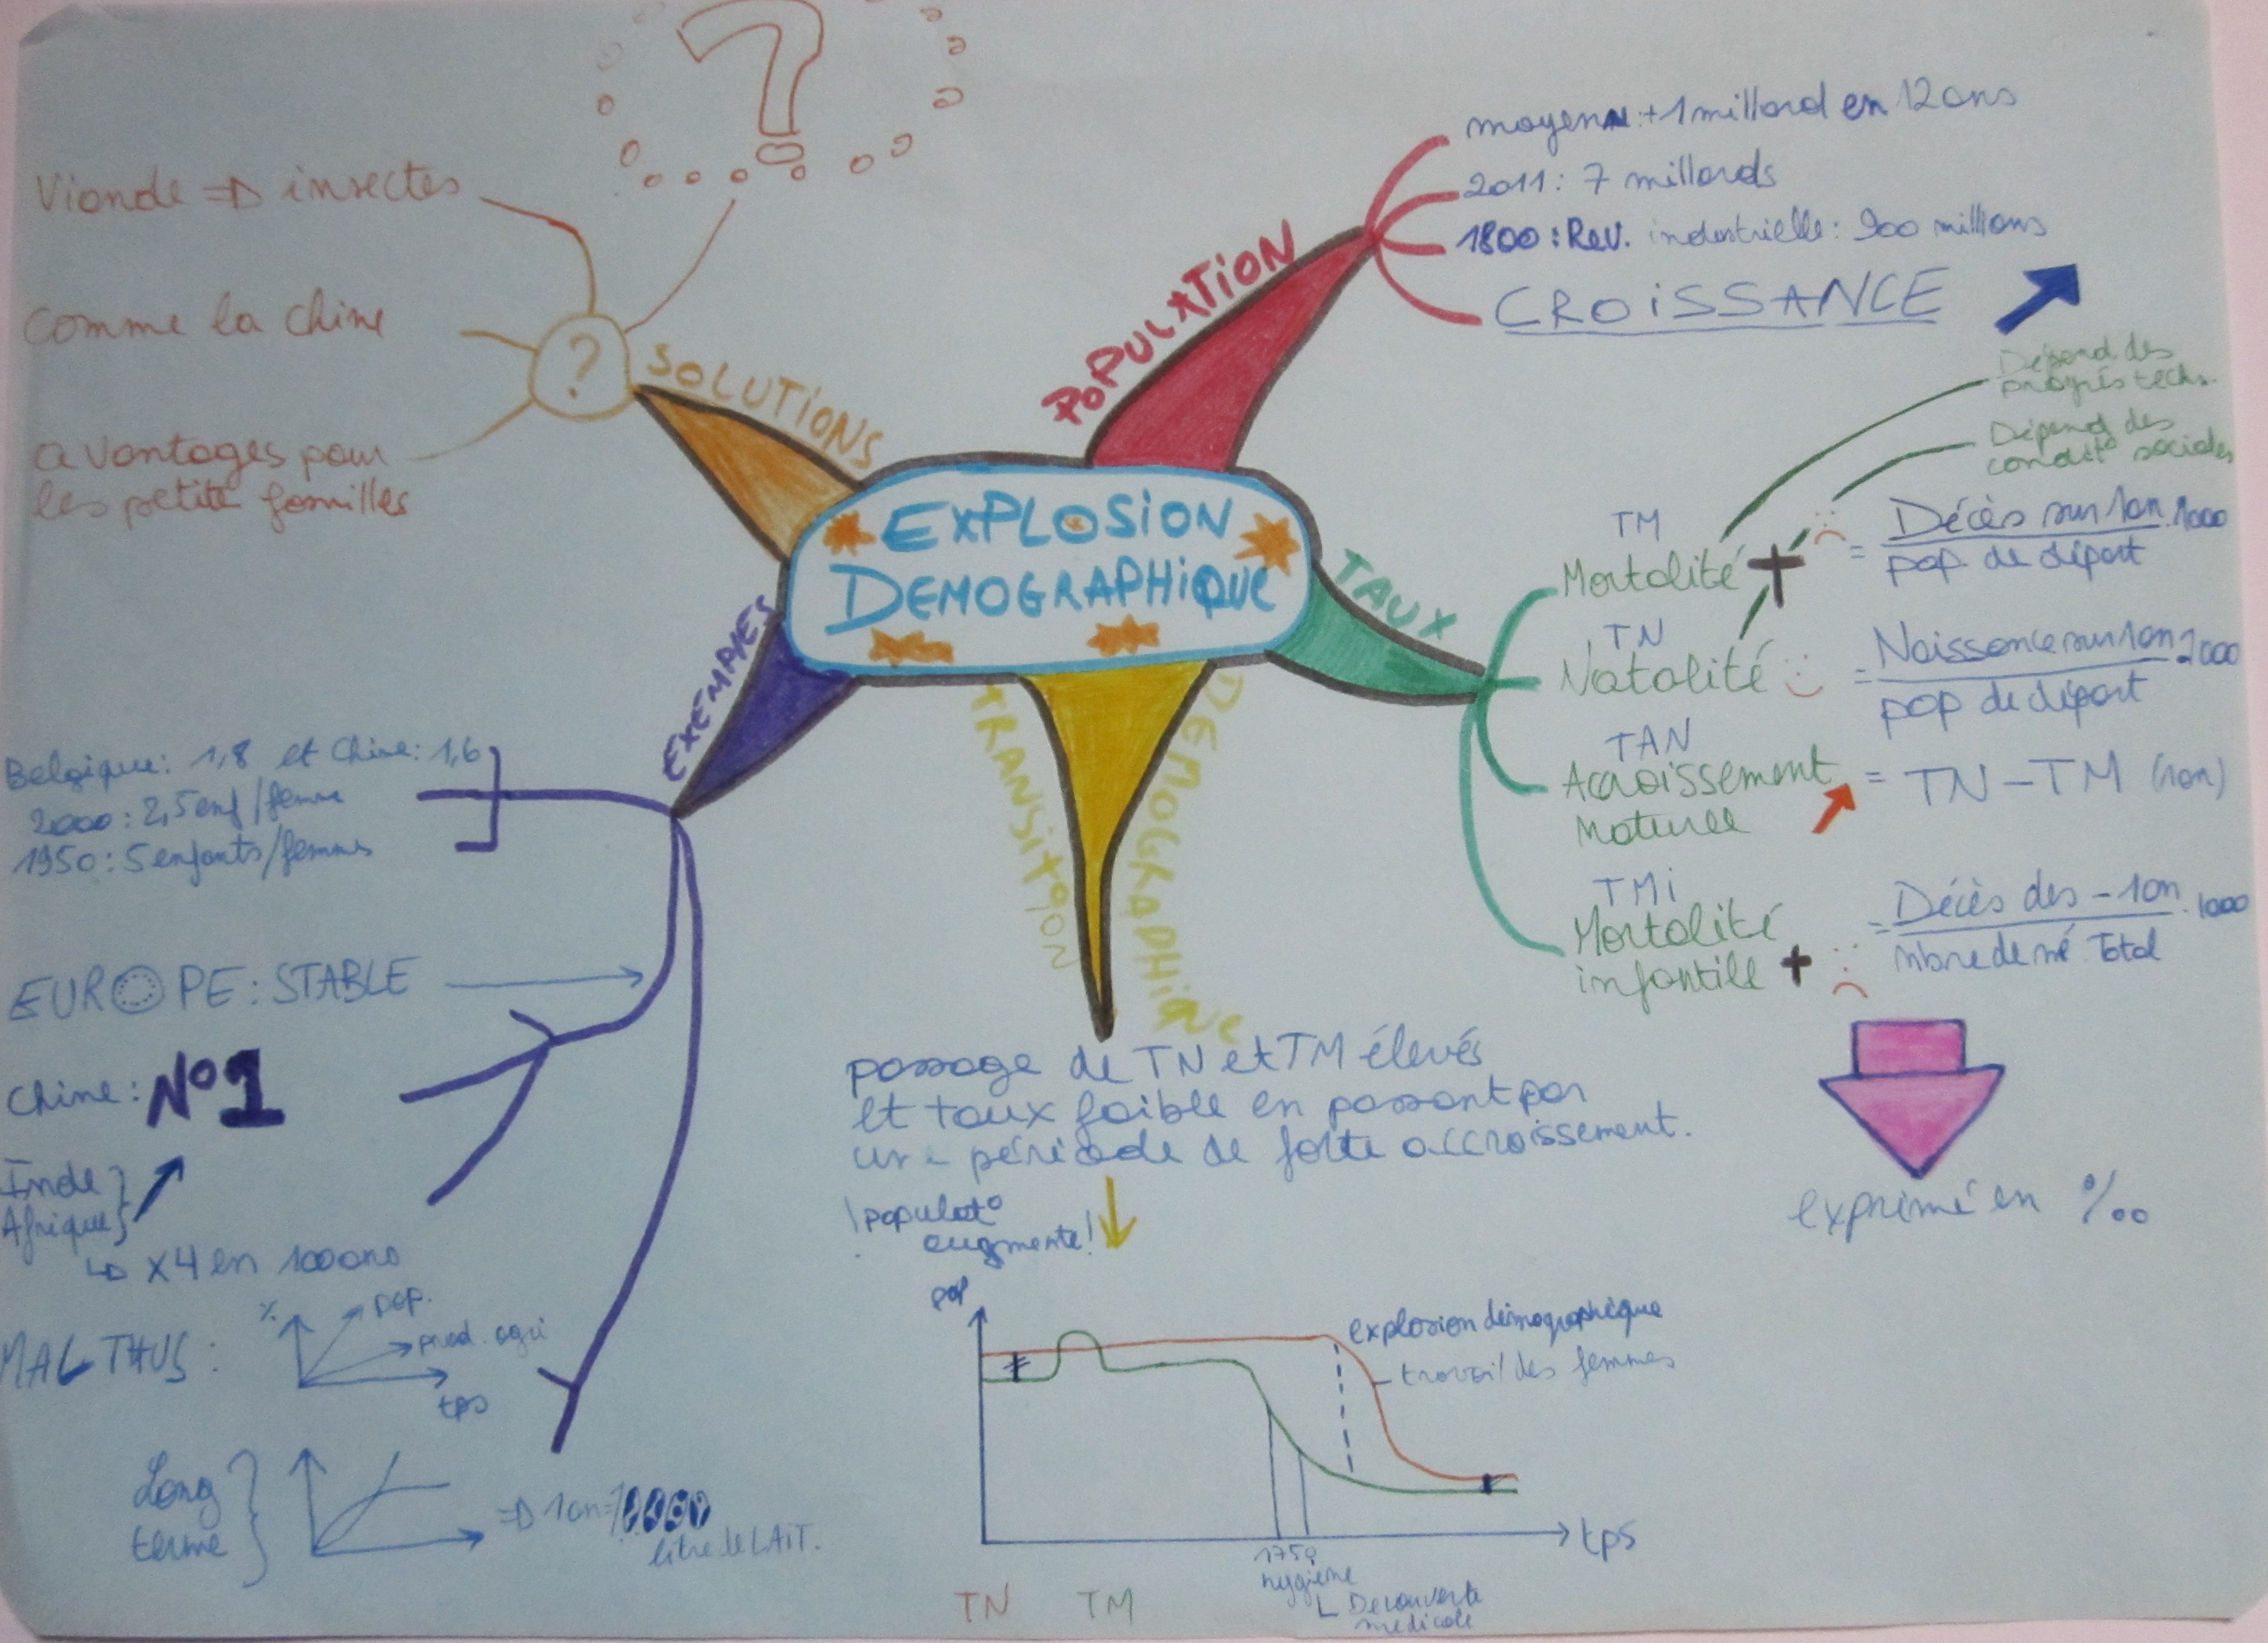 EXPLOSION
DEMOGRAPHiQUE
POPULATION
moyenn : +1 milliard en 12 ans
2011 : 7 milliards
1800 : Rev. industrielle : 900 millions
CROiSSANCE
TAUX
Dépend des
progrès tech.
Dépend des
condit° sociales
TM
Mortalité = Décès sur 1 an . 1000
pop. de départ
TN
Natalité = Naissance sur 1 an . 1000
pop de départ
TAN
Accroissement = TN - TM (1an)
Naturel
TMi
Mortalité
infantile = Décès des - 1 an . 1000
nbre de né Total
exprimé en ‰
TRANSiTiON
DEMOGRAPHiQUE
passage de TN et TM élevés
et taux faible en passant par
une période de forte accroissement.
populat°
augmente!
pop
explosion démographique
travail des femmes
tps
1750
hygiène
Decouverte
medicale
TN TM
EXEMPLES
Belgique : 1,8 et Chine : 1,6
2000 : 2,5 enf/femme
1950 : 5 enfants/femmes
EUROPE : STABLE
Chine : N°1
Inde
Afrique
x4 en 100 ans
MALTHUS :
%
pop.
prod. agri
tps
Long
terme
=> 1 an =
litre de LAiT.
SOLUTiONS
?
?
Viande => insectes
Comme la Chine
avantages pour
les petite familles